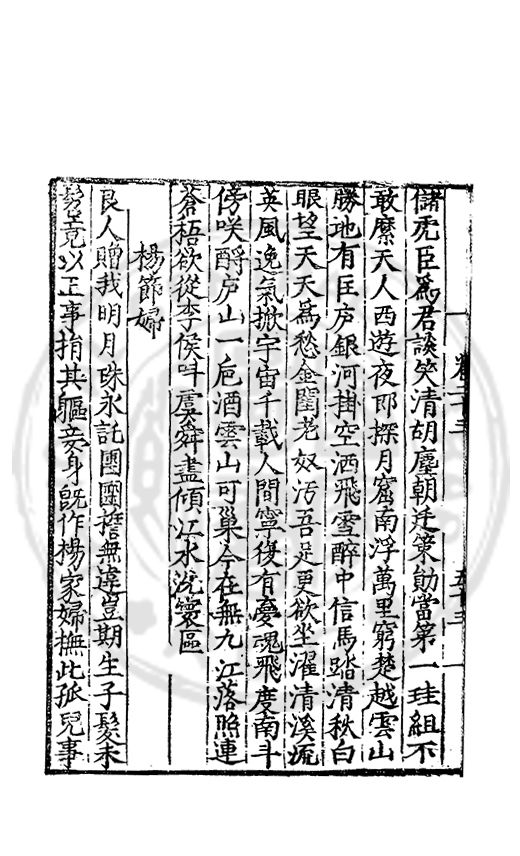 卷二十三
五十三
儲虎臣爲君談笑清胡塵朝廷策勛當第一珪組不
敢縻天人西遊夜郎探月窟南浮萬里窮楚越雲山
勝地有匡庐銀河掛空洒飛雪醉中信馬踏清秋白
眼望天天爲愁金閨老奴污吾足更欲坐濯清溪流
英風逸氣掀宇宙千載人間寧復有憂魂飛度南斗
傍咲酹庐山一巵酒雲山可巢今在無九江落照連
蒼梧欲從李侯呌虞舜盡傾江水浣寰區
楊節婦
良人贈我明月珠永託團團誓無違豈期生子髮未
髧竟以王事捐其軀妾身既作楊家婦撫此孤兒事